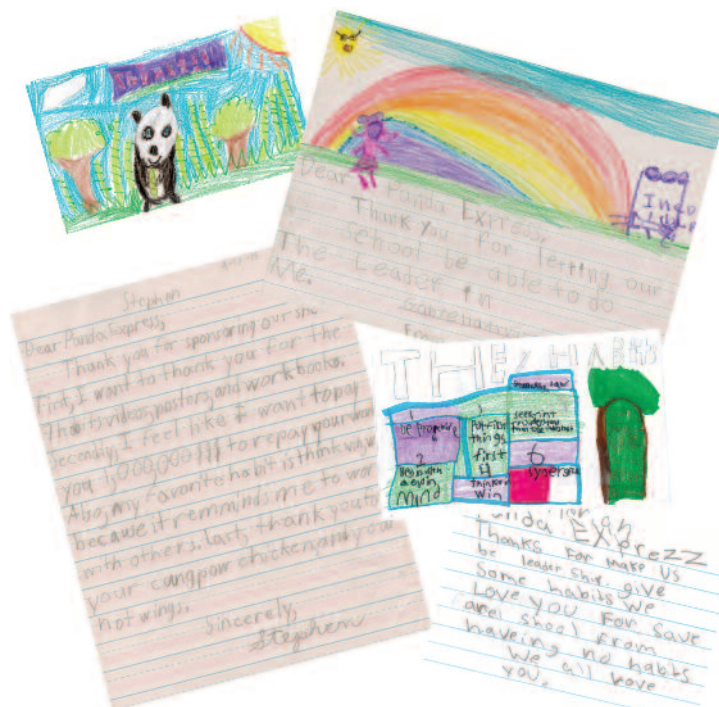 Dear Panda Express,
Thank you for letting our
school be able to do
The Leader in
Me.
Indo
Stephen
Dear Panda Express,
Thank you for sponsoring our
First, I want to thank you for the
videos, posters, and work books.
Secendly, I feel like I want to pay
you 1,000,000 to repay your
Also, my favorite habit is think
because it remminds me to wor
with others. Last, thank you
your cungpow chicken, and your
hot wings.
Sincerely,
Stephen
THE 7 HABITS
1
be
2
Begin with
mind
3
Put First
things
first
4
think
win
seek first
6
Panda EXprezz
Thanks For make US
be leader Ship. give
Some habits We
Love you For Save
are shool From
haveing no habits
We all love
you.